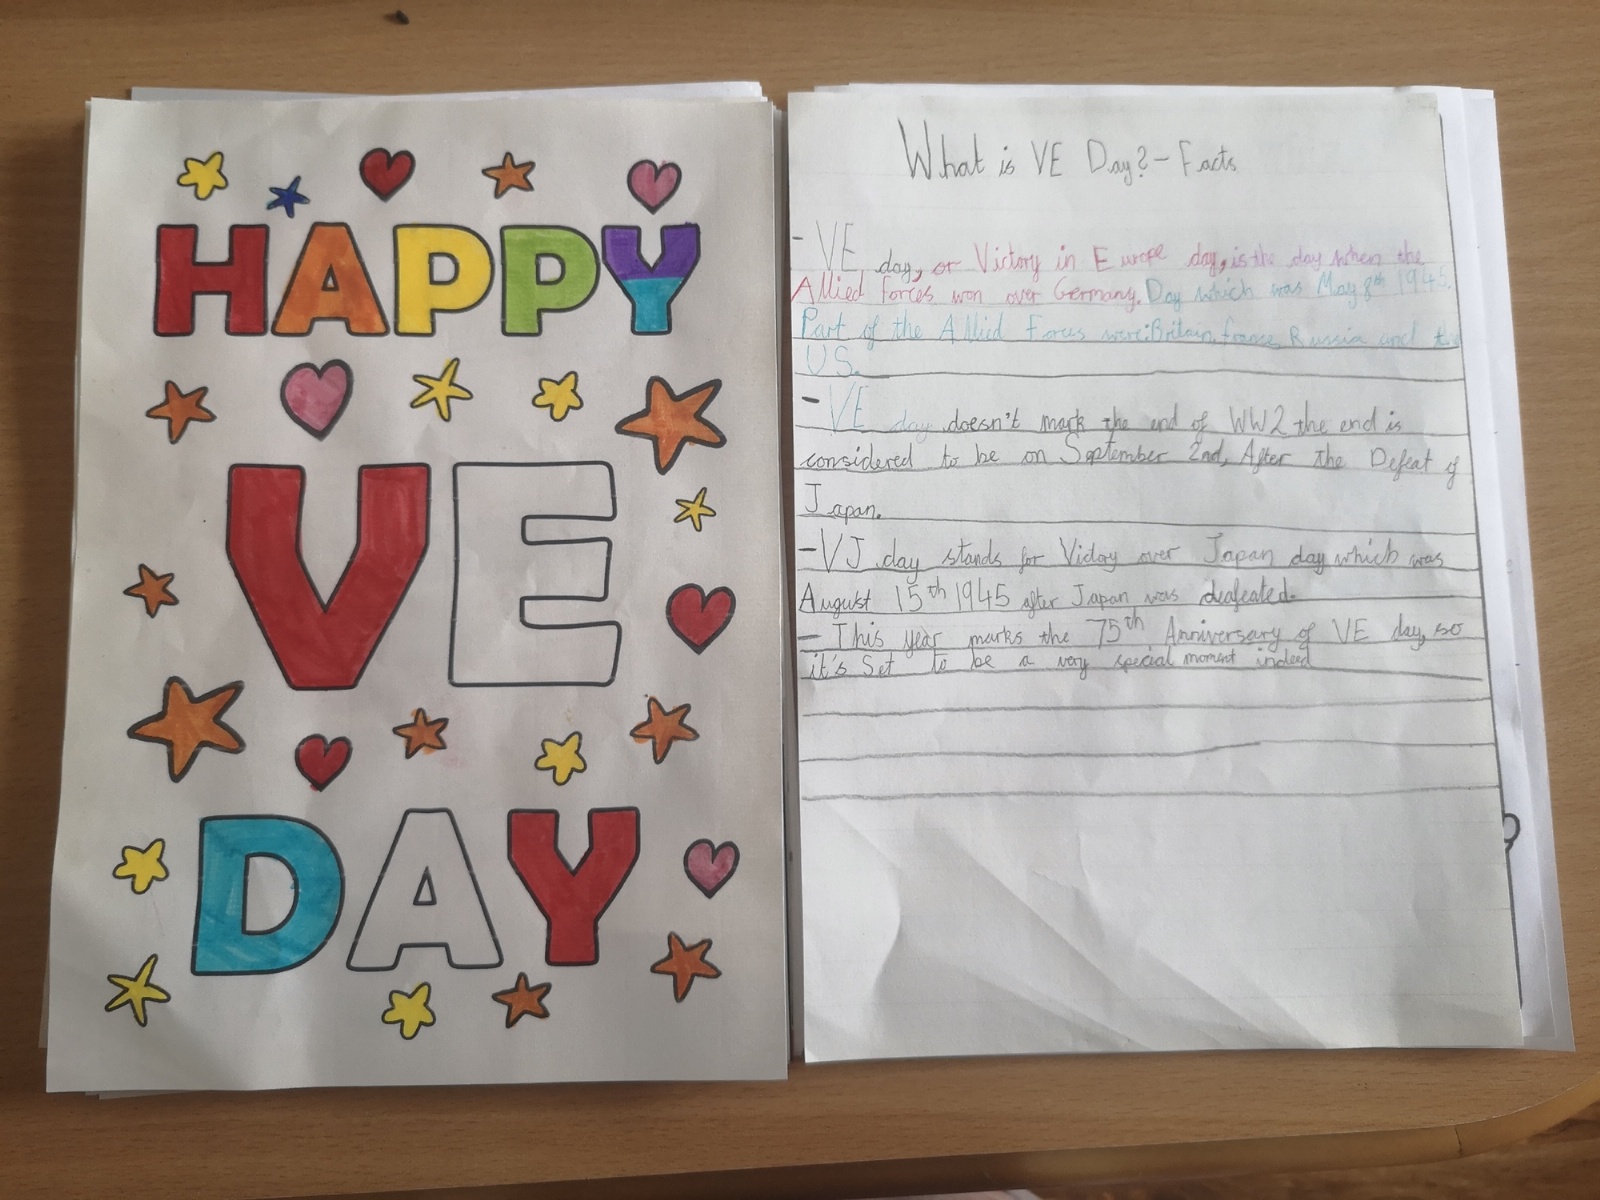 HAPPY
VE
DAY
What is VE Day? - Facts
- VE day, or Victory in Europe day, is the day when the
Allied Forces won over Germany. Day which was May 8th 1945.
Part of the Allied Forces were: Britain, france, Russia and the
US.
- VE day doesn't mark the end of WW2 the end is
considered to be on September 2nd, After the Defeat of
Japan.
- VJ day stands for Victory over Japan day which was
August 15th 1945 after Japan was deafeated.
- This year marks the 75th Anniversary of VE day, so
it's Set to be a very special moment indeed